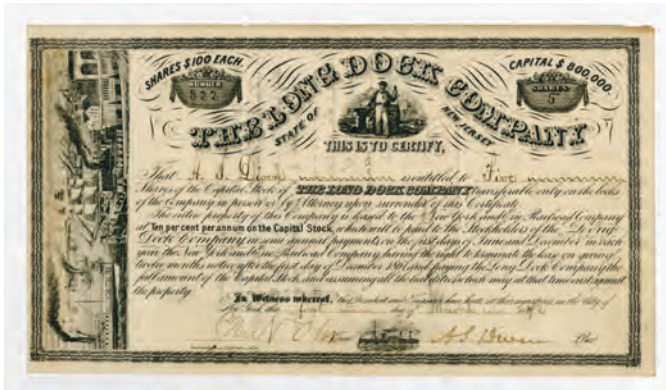 SHARES $100 EACH.
CAPITAL $ 800,000.
NUMBER
522
SHARES
5
THE LONG DOCK COMPANY
STATE OF NEW JERSEY
THIS IS TO CERTIFY,
That A. S. is entitled to Five
Shares of the Capital Stock of THE LONG DOCK COMPANY transferable only on the books
of the Company in person or by Attorney upon surrender of this Certificate.
The entire property of this Company is leased to the New York and Erie Railroad Company
at Ten per cent per annum on the Capital Stock, which will be paid to the Stockholders of the Long
Dock Company in semi annual payments on the first days of June and December in each
year the New York and Erie Railroad Company having the right to terminate the lease on giving
twelve months notice after the first day of December and paying the Long Dock Company the
full amount of the Capital Stock and assuming all the liabilities which may at that time exist against
the property.
In Witness whereof, the President and have their signatures in the City of
New York this first day of